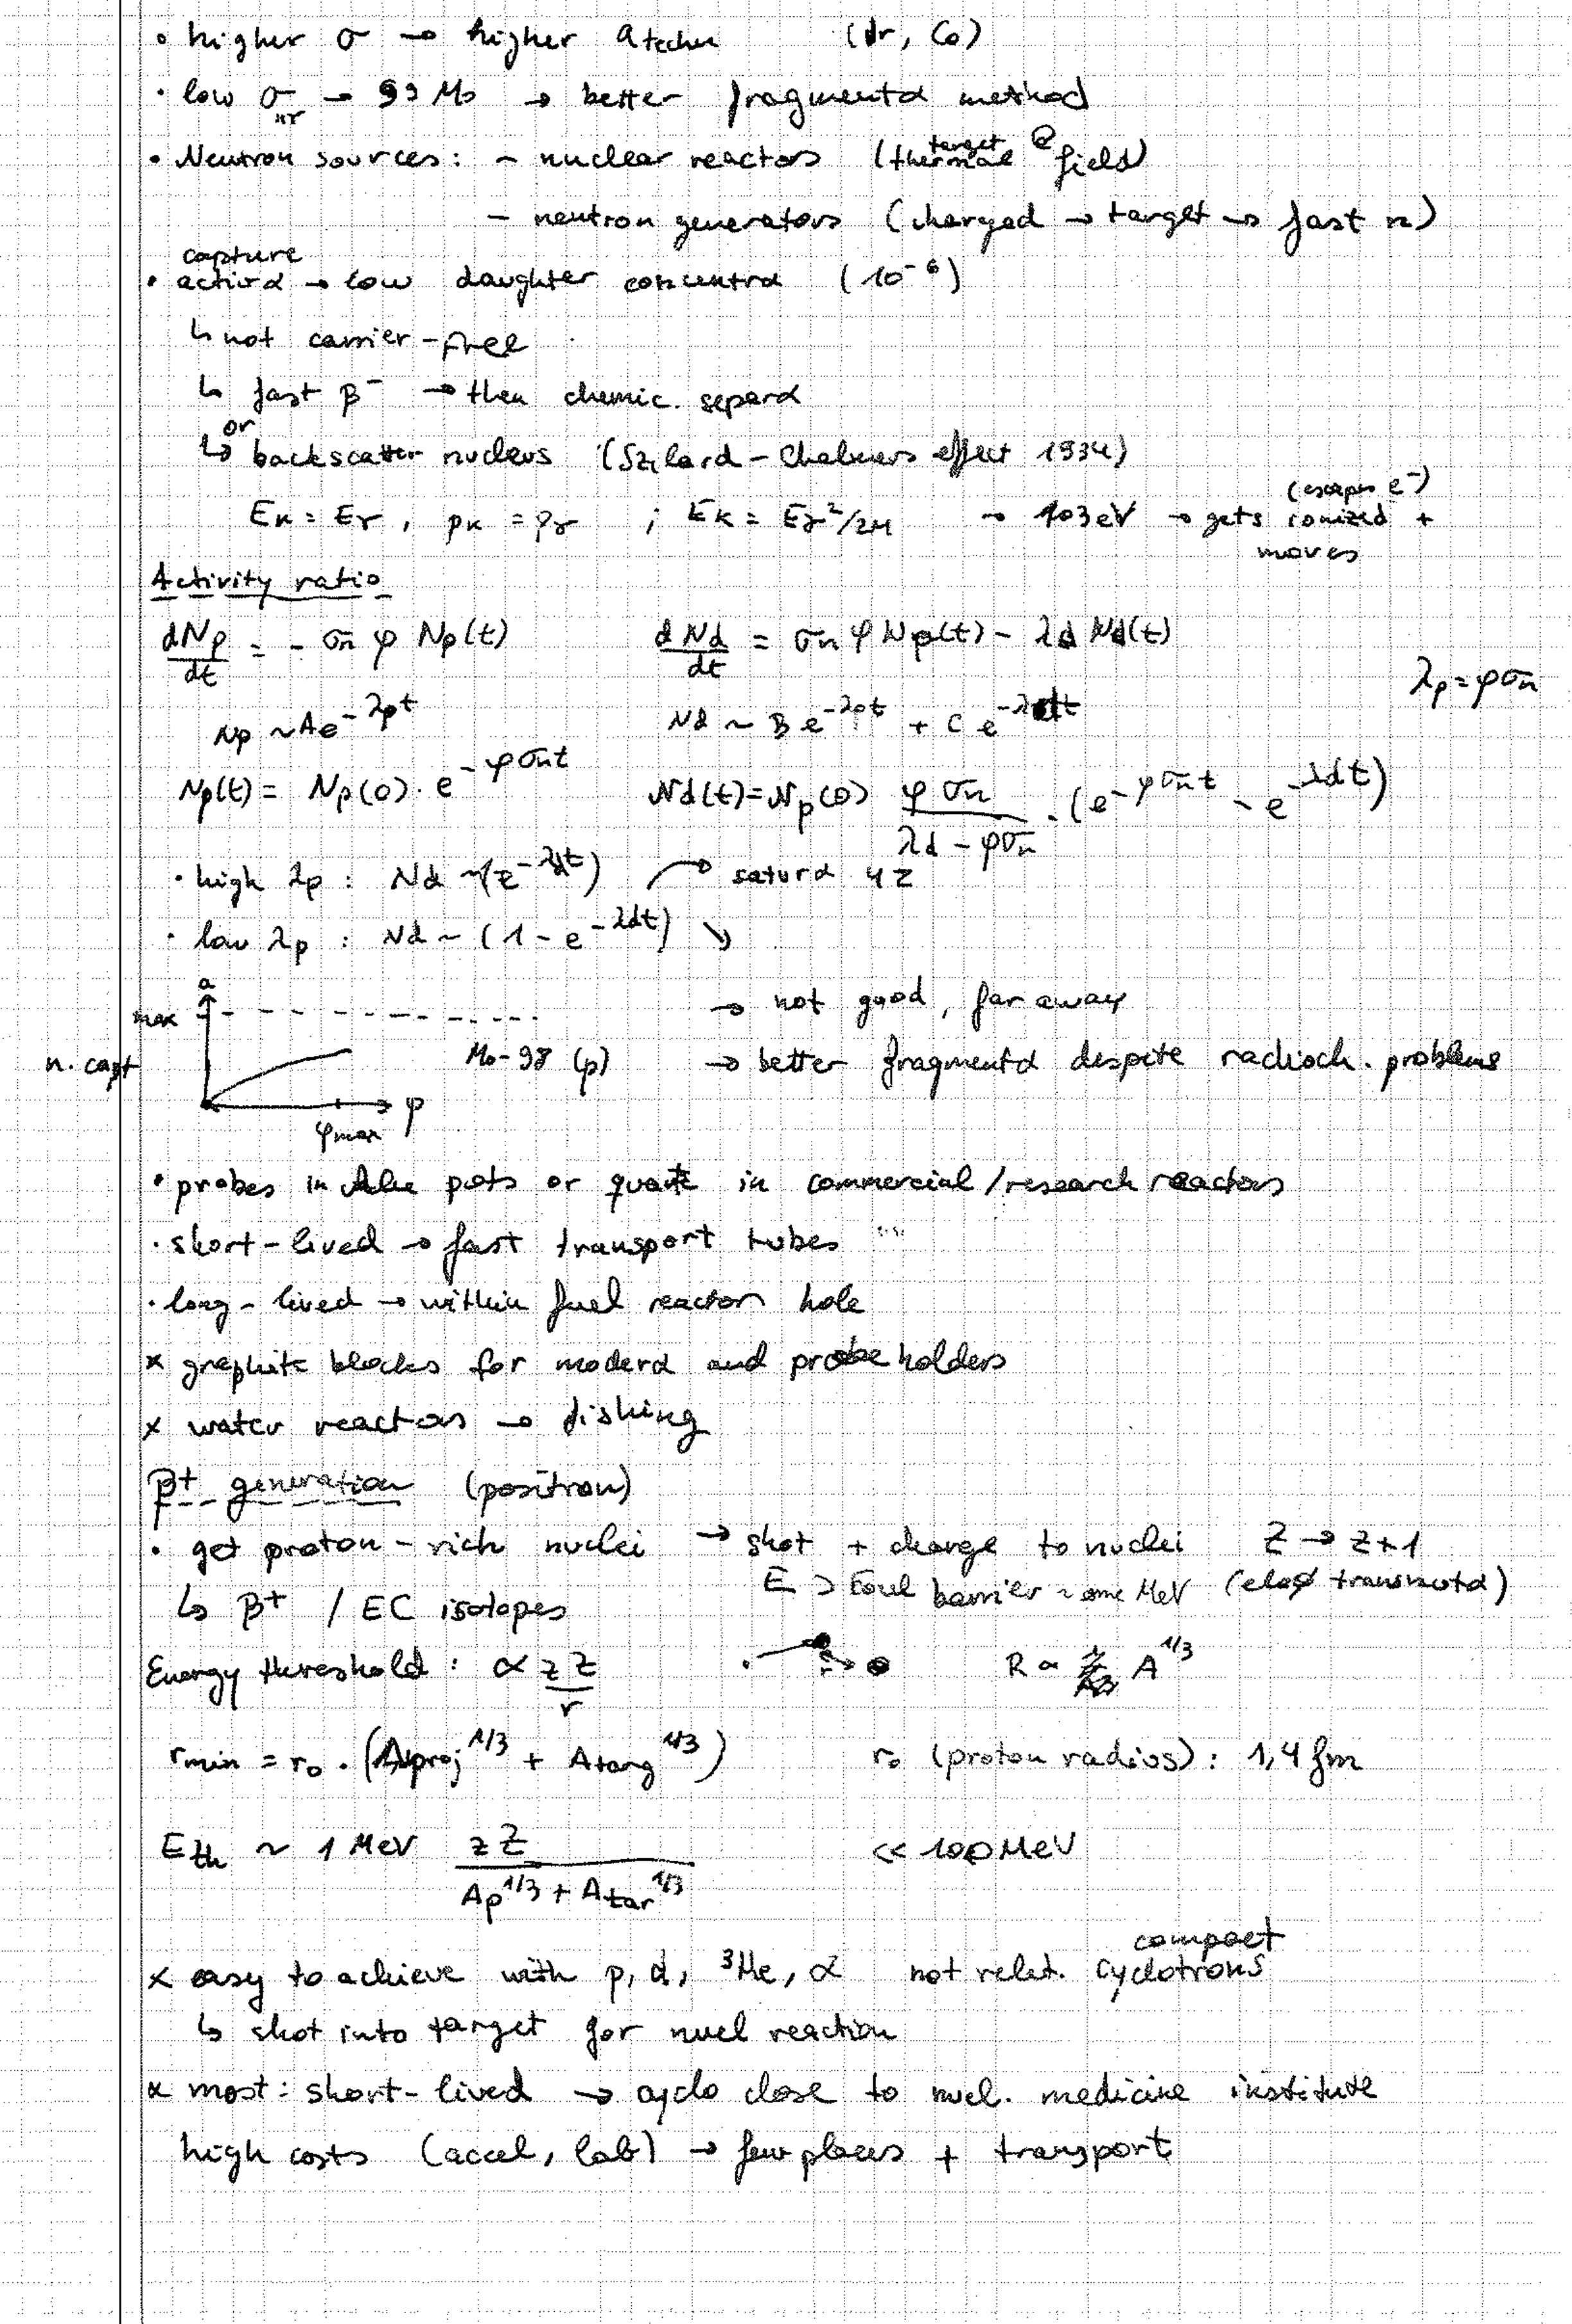 • higher σ → higher a techn (Ir, Co)
• low σ nγ → 99 Mo → better fragmentα method
• Neutron sources: - nuclear reactors (target @ thermal field)
- neutron generators (charged → target → fast n)
capture
• activα → low daughter concentrα (10⁻⁶)
↳ not carrier-free
↳ fast β⁻ → then chemic. separα
or
↳ backscatter nucleus (Szilard-Chalmers effect 1934)
E_K = E_γ, p_K = p_γ ; E_K = E_γ²/2M → 103 eV → gets ionized + (escapes e⁻)
moves
Activity ratio
dNp/dt = - σn φ Np(t)   dNd/dt = σn φ Np(t) - λd Nd(t)
λp = φσn
Np ~ A e^-λpt   Nd ~ B e^-λpt + C e^-λdt
Np(t) = Np(0) · e^-φσnt   Nd(t) = Np(0) φσn/(λd - φσn) · (e^-φσnt - e^-λdt)
• high λp : Nd ~ (e^-λdt) → saturα 4z
• low λp : Nd ~ (1 - e^-λdt) ↘
a
max → not good, far away
n. capt Mo-98 (p) → better fragmentα despite radioch. problems
φ
φmax
• probes in pots or quartz in commercial/research reactors
• short-lived → fast transport tubes
• long-lived → within fuel reactor hole
x graphite blocks for moderα and probe holders
x water reactors → fishing
β⁺ generation (positron)
• get proton-rich nuclei → shot + charge to nuclei Z → Z+1
↳ β⁺ / EC isotopes E > Coul barrier ~ some MeV (transmutα)
Energy threshold : ∝ zZ/r R ∝ A^1/3
rmin = r₀ · (Aproj^1/3 + Atarg^1/3) r₀ (proton radius) : 1,4 fm
Eth ~ 1 MeV zZ/(Ap^1/3 + Atar^1/3) << 100 MeV
compact
x easy to achieve with p, d, ³He, α not relat. cyclotrons
↳ shot into target for nucl reaction
x most: short-lived → cyclo close to nucl. medicine institute
high costs (accel, lab) → few places + transport